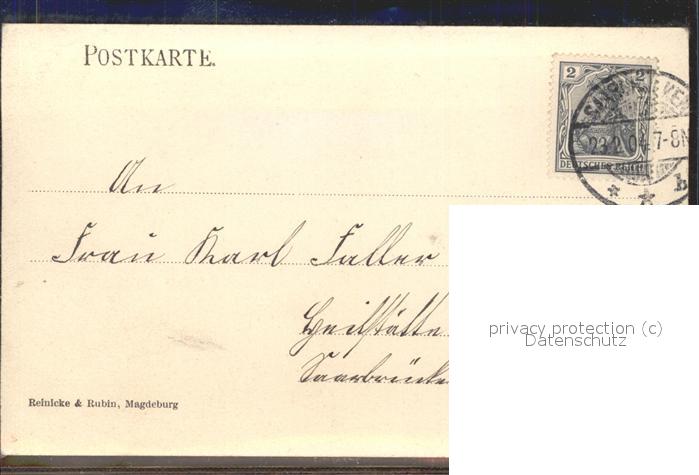 POSTKARTE.
2 2
DEUTSCHES REICH
23.2.04.7-8N
* * b
An
Frau Karl Faller
Heilstätte
Saarbrücke
privacy protection (c)
Datenschutz
Reinicke & Rubin, Magdeburg